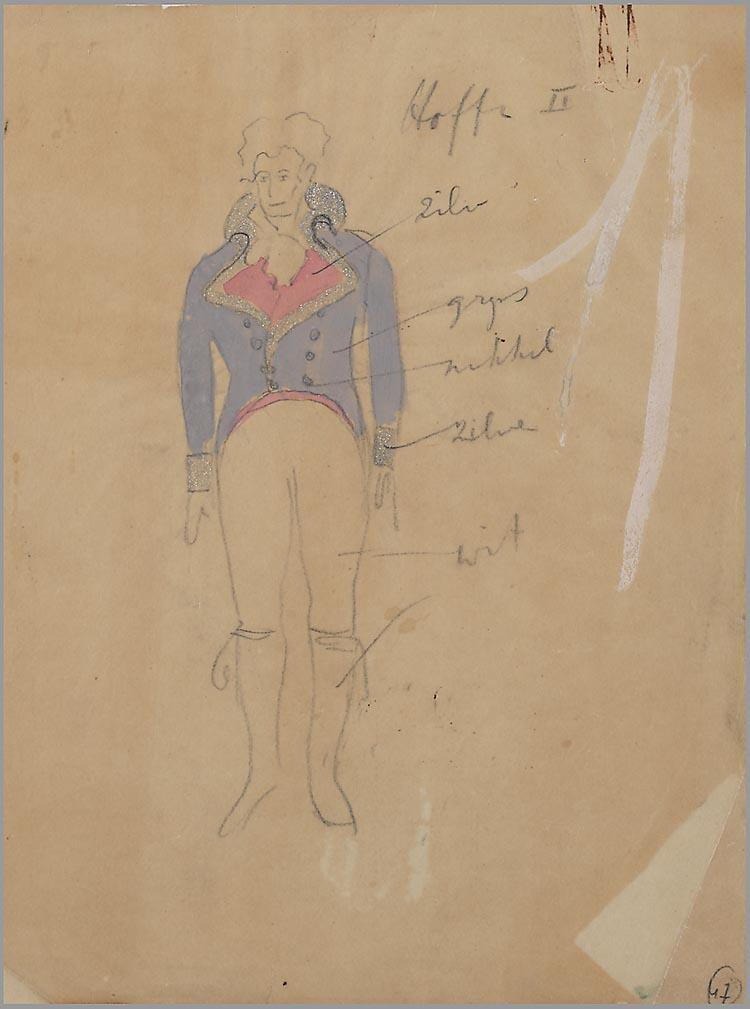 Hoff II
zilv
grys
nikkel
zilve
wit
47